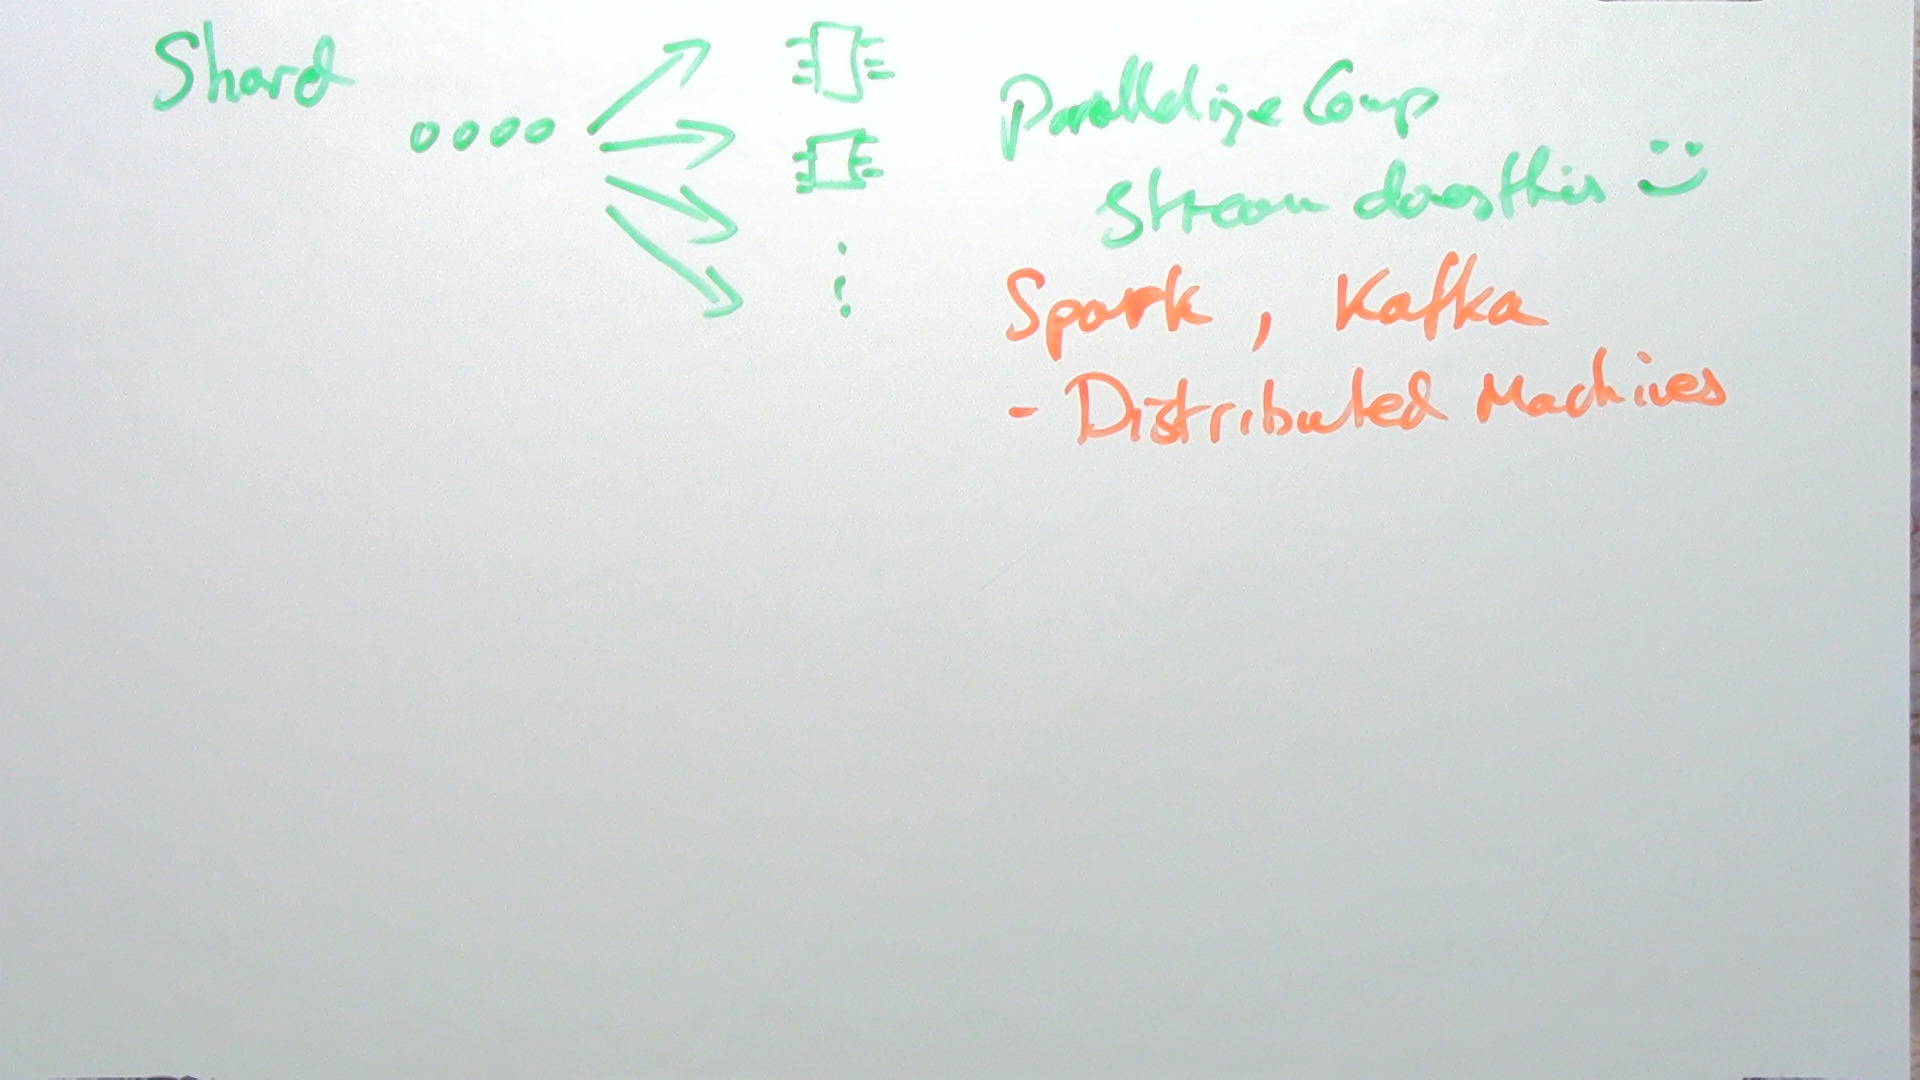 Shard
Parallelize Comp
Stream does this
Spark, Kafka
- Distributed Machines